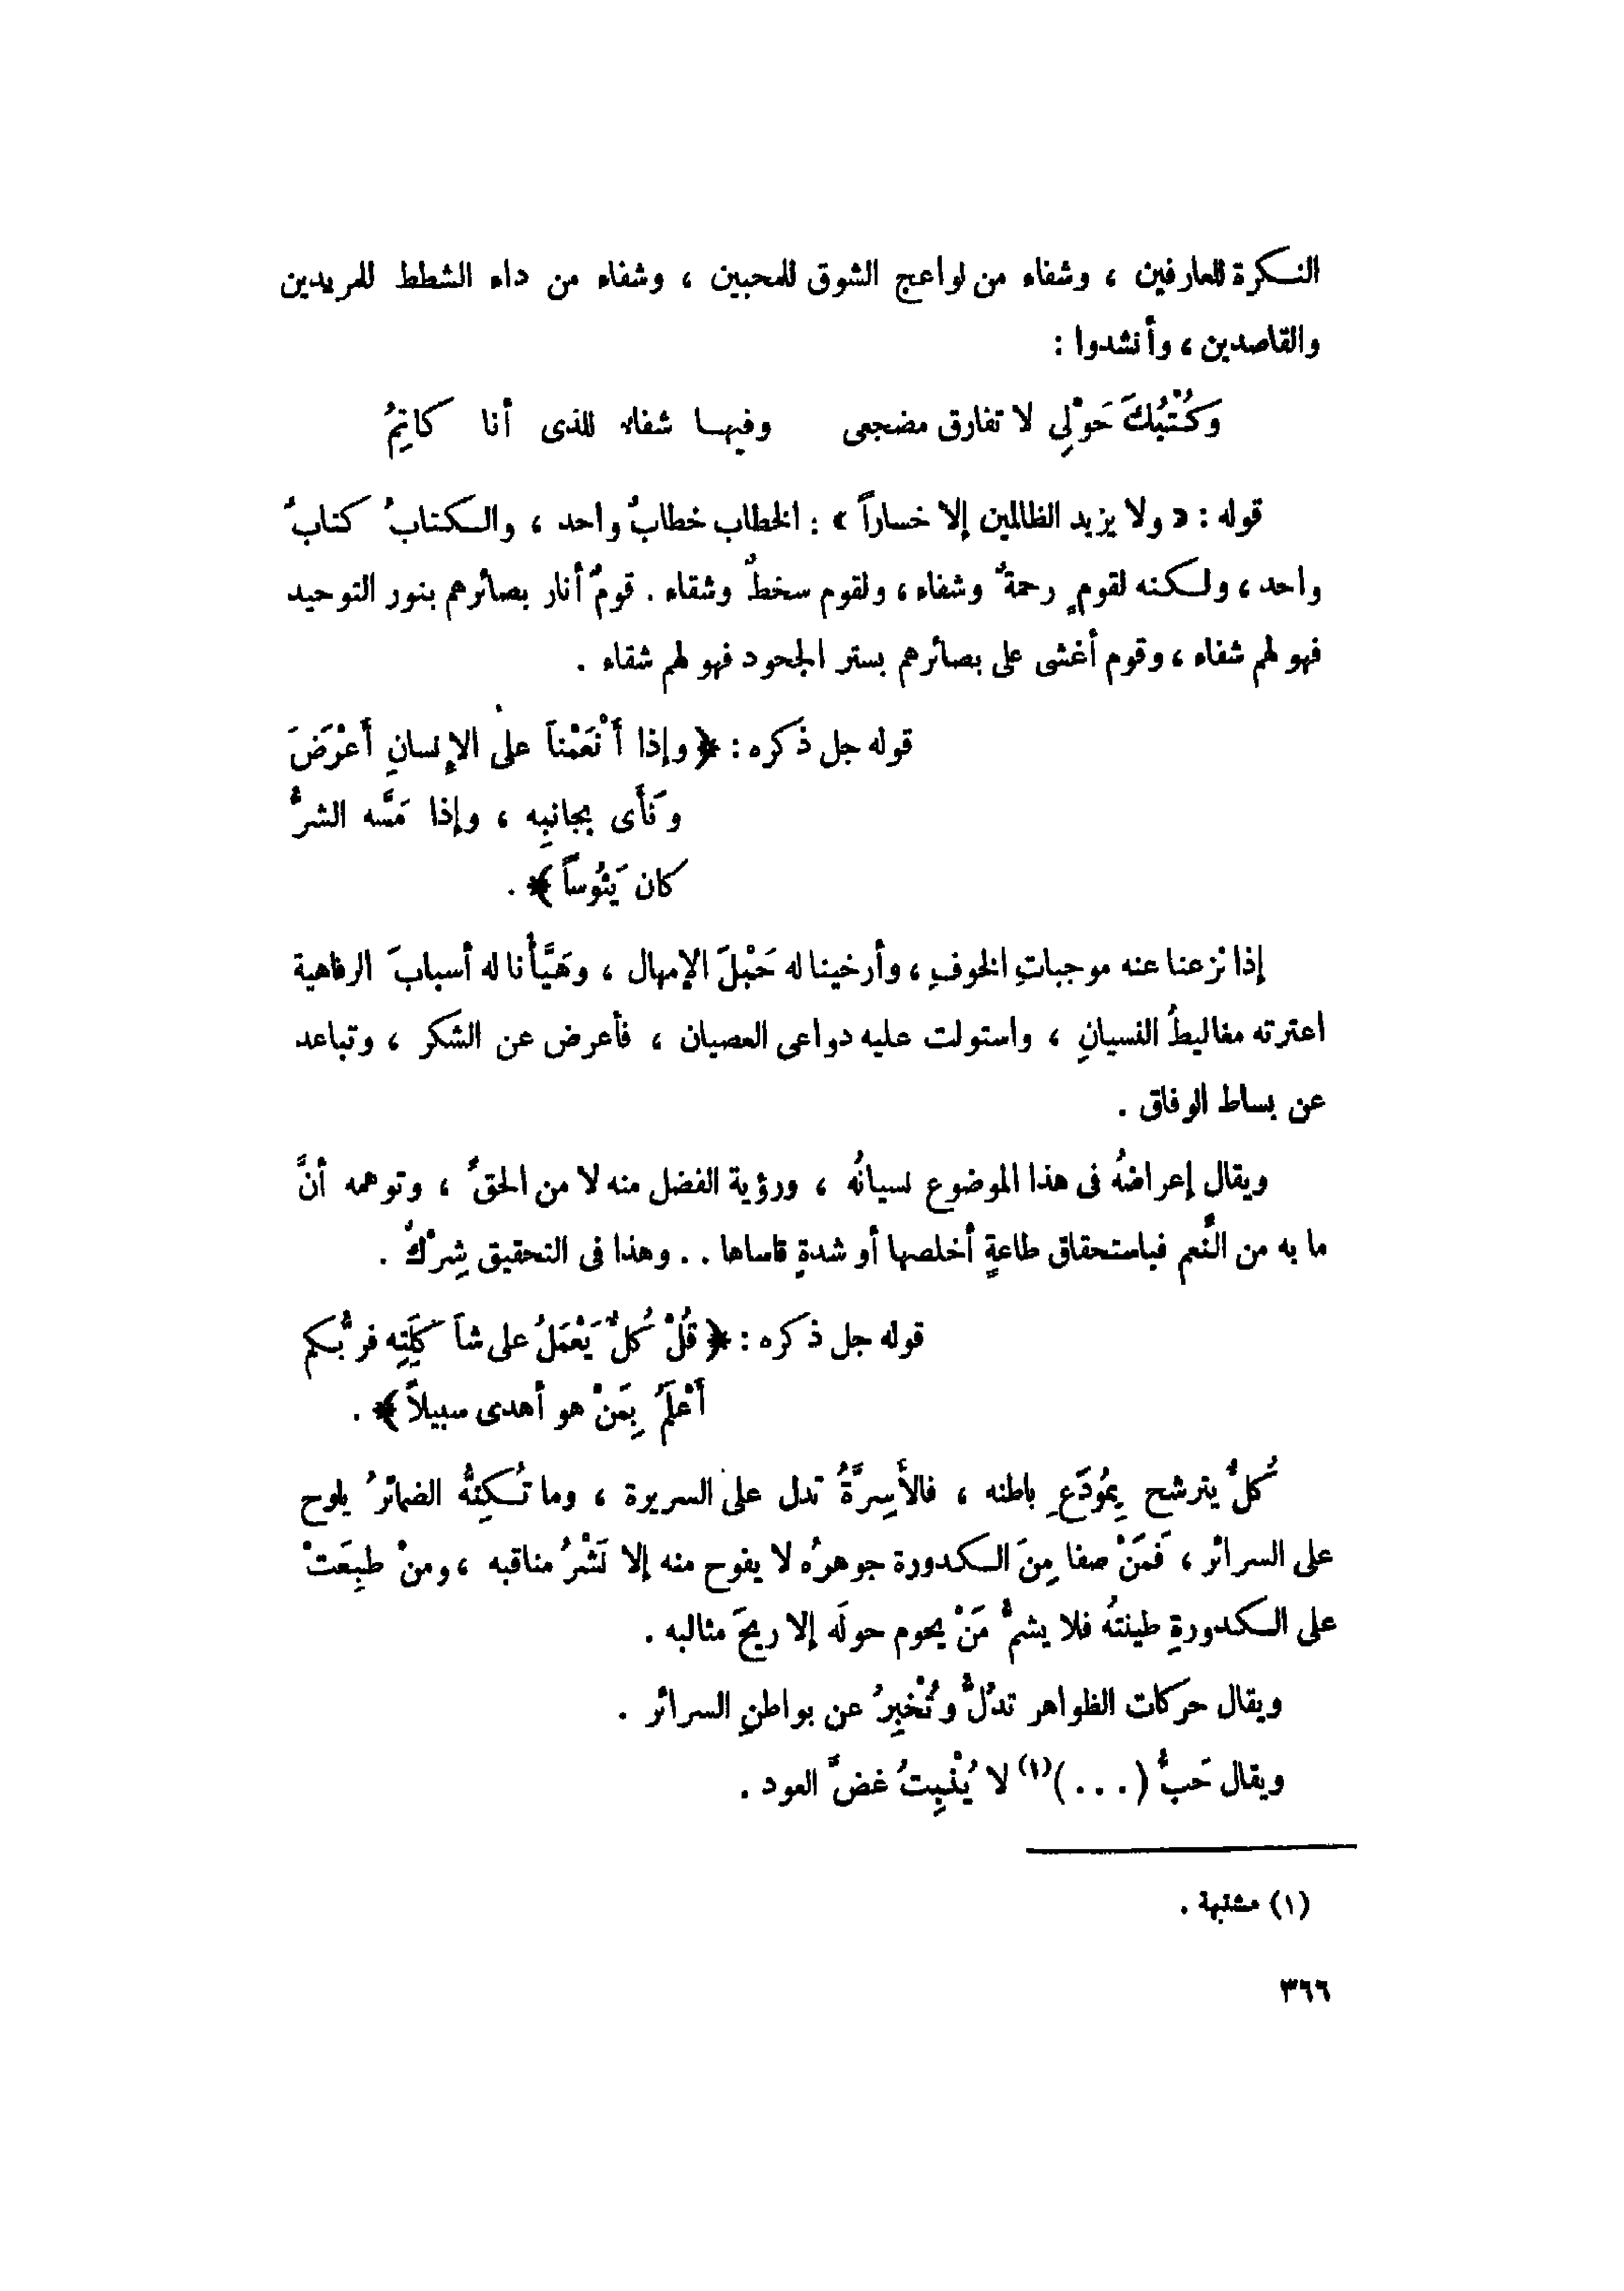 النكرة للعارفين ، وشفاء من لواعج الشوق للمحبين ، وشفاء من داء الشطط للمريدين
والقاصدين ، وأنشدوا :
وَكُتْبُكَ حَوْلِى لا تفارق مضجعى وفيها شفاء للذى أنا كاتِمُ
قوله : « ولا يزيد الظالمين إلا خساراً » : الخطاب خطابٌ واحد ، والكتابُ كتابٌ
واحد ، ولكنه لقومٍ رحمةٌ وشفاء ، ولقوم سخطٌ وشقاء . قومٌ أنار بصائرهم بنور التوحيد
فهو لهم شفاء ، وقوم أغشى على بصائرهم بستر الجحود فهو لهم شقاء .
قوله جل ذكره : ﴿ وإذا أَنْعَمْنَا على الإنسانِ أَعْرَضَ
ونَأَى بجانبِه ، وإذا مَسَّه الشرُّ
كان يَئُوساً ﴾ .
إذا نزعنا عنه موجباتِ الخوفِ ، وأرخينا له حَبْلَ الإمهال ، وهَيَّأنا له أسبابَ الرفاهية
اعترته مغاليطُ النسيانِ ، واستولت عليه دواعى العصيان ، فأعرض عن الشكر ، وتباعد
عن بساط الوفاق .
ويقال إعراضهُ فى هذا الموضوع نسيانُه ، ورؤية الفضل منه لا من الحقِّ ، وتوهمه أنَّ
ما به من النِّعم فباستحقاق طاعةٍ أخلصها أو شدةٍ قاساها . . وهذا فى التحقيق شِرْكٌ .
قوله جل ذكره : ﴿ قُلْ كُلٌّ يَعْمَلُ على شاكِلَتِه فربُّكم
أَعْلَمُ بِمَنْ هو أهدى سبيلاً ﴾ .
كُلٌّ يترشح بِمُودَعِ باطنه ، فالأَسِرَّةُ تدل على السريرة ، وما تُكِنُّه الضمائرُ يلوح
على السرائر ، فَمَنْ صفا مِنَ الكدورة جوهرُه لا يفوح منه إلا نَشْرُ مناقبه ، ومنْ طبِعَتْ
على الكدورةِ طينتُه فلا يشمُّ مَنْ يحوم حولَه إلا ريحَ مثالبه .
ويقال حركات الظواهر تدلُّ وتُخْبِرُ عن بواطنِ السرائر .
ويقال حَبُّ ( . . . )(١) لا يُنْبِتُ غضَّ العود .
(١) مشتبهة .
٣٦٦